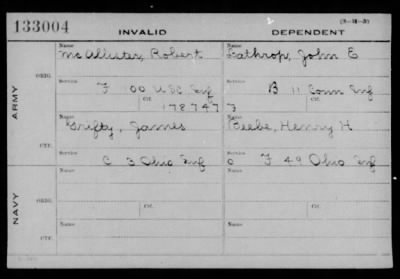 133004
INVALID
DEPENDENT
(3-111-3)
ARMY
ORIG.
Name
McAllister, Robert
Name
Lathrop, John E
Service
F 00 U.S.C. Inf
Service
B 11 Conn Inf
Ctf.
178747
Ctf.
CTF.
Name
Grifty, James
Name
Beebe, Henry H
Service
C 3 Ohio Inf
Service
C F 49 Ohio Inf
NAVY
ORIG.
Name
Name
Service
Ctf.
Service
Ctf.
CTF.
Name
Name
Service
Service